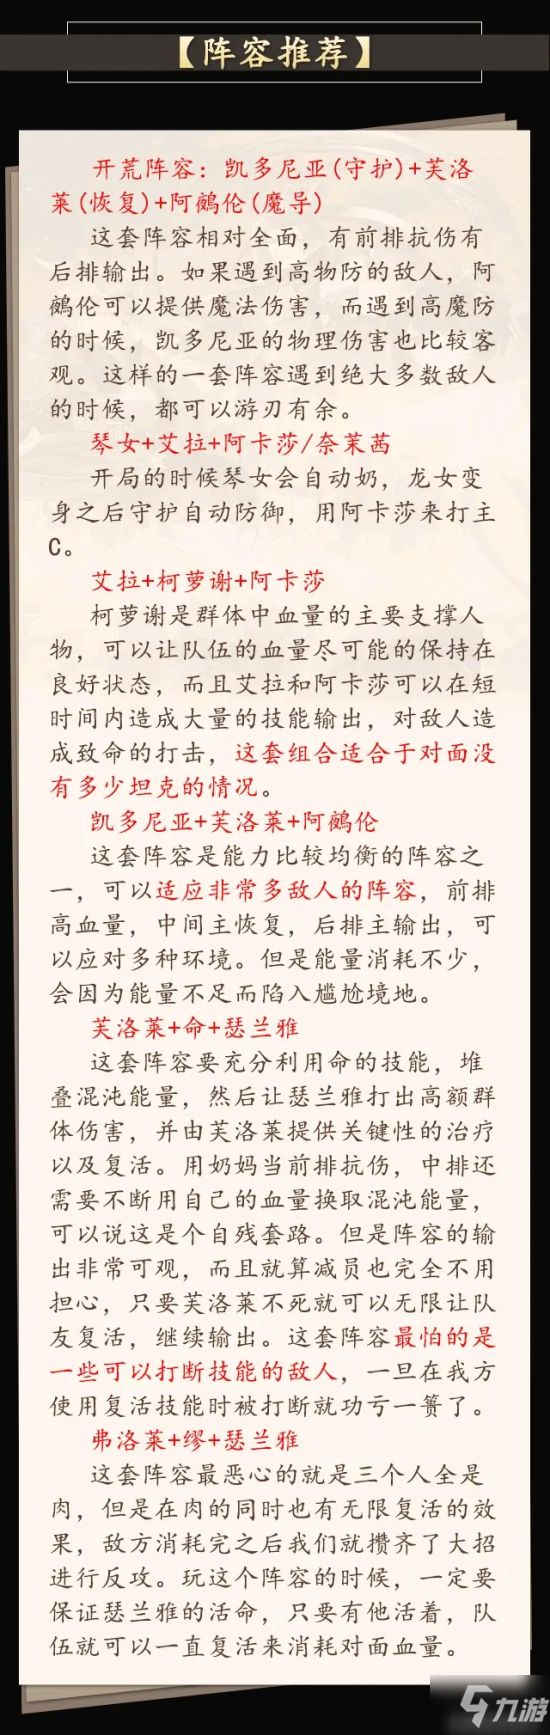 【阵容推荐】
开荒阵容：凯多尼亚(守护)+芙洛
莱(恢复)+阿鹇伦(魔导)
这套阵容相对全面，有前排抗伤有
后排输出。如果遇到高物防的敌人，阿
鹇伦可以提供魔法伤害，而遇到高魔防
的时候，凯多尼亚的物理伤害也比较客
观。这样的一套阵容遇到绝大多数敌人
的时候，都可以游刃有余。
琴女+艾拉+阿卡莎/奈茉茜
开局的时候琴女会自动奶，龙女变
身之后守护自动防御，用阿卡莎来打主
C。
艾拉+柯萝谢+阿卡莎
柯萝谢是群体中血量的主要支撑人
物，可以让队伍的血量尽可能的保持在
良好状态，而且艾拉和阿卡莎可以在短
时间内造成大量的技能输出，对敌人造
成致命的打击，这套组合适合于对面没
有多少坦克的情况。
凯多尼亚+芙洛莱+阿鹇伦
这套阵容是能力比较均衡的阵容之
一，可以适应非常多敌人的阵容，前排
高血量，中间主恢复，后排主输出，可
以应对多种环境。但是能量消耗不少，
会因为能量不足而陷入尴尬境地。
芙洛莱+命+瑟兰雅
这套阵容要充分利用命的技能，堆
叠混沌能量，然后让瑟兰雅打出高额群
体伤害，并由芙洛莱提供关键性的治疗
以及复活。用奶妈当前排抗伤，中排还
需要不断用自己的血量换取混沌能量，
可以说这是个自残套路。但是阵容的输
出非常可观，而且就算减员也完全不用
担心，只要芙洛莱不死就可以无限让队
友复活，继续输出。这套阵容最怕的是
一些可以打断技能的敌人，一旦在我方
使用复活技能时被打断就功亏一篑了。
弗洛莱+缪+瑟兰雅
这套阵容最恶心的就是三个人全是
肉，但是在肉的同时也有无限复活的效
果，敌方消耗完之后我们就攒齐了大招
进行反攻。玩这个阵容的时候，一定要
保证瑟兰雅的活命，只要有他活着，队
伍就可以一直复活来消耗对面血量。
九游